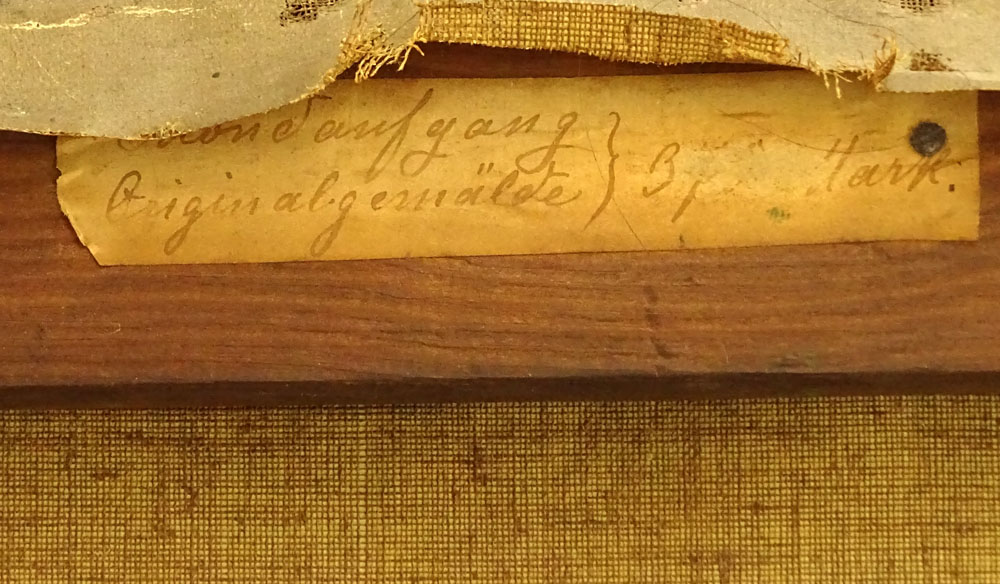 Mondaufgang
Originalgemälde } Mark.